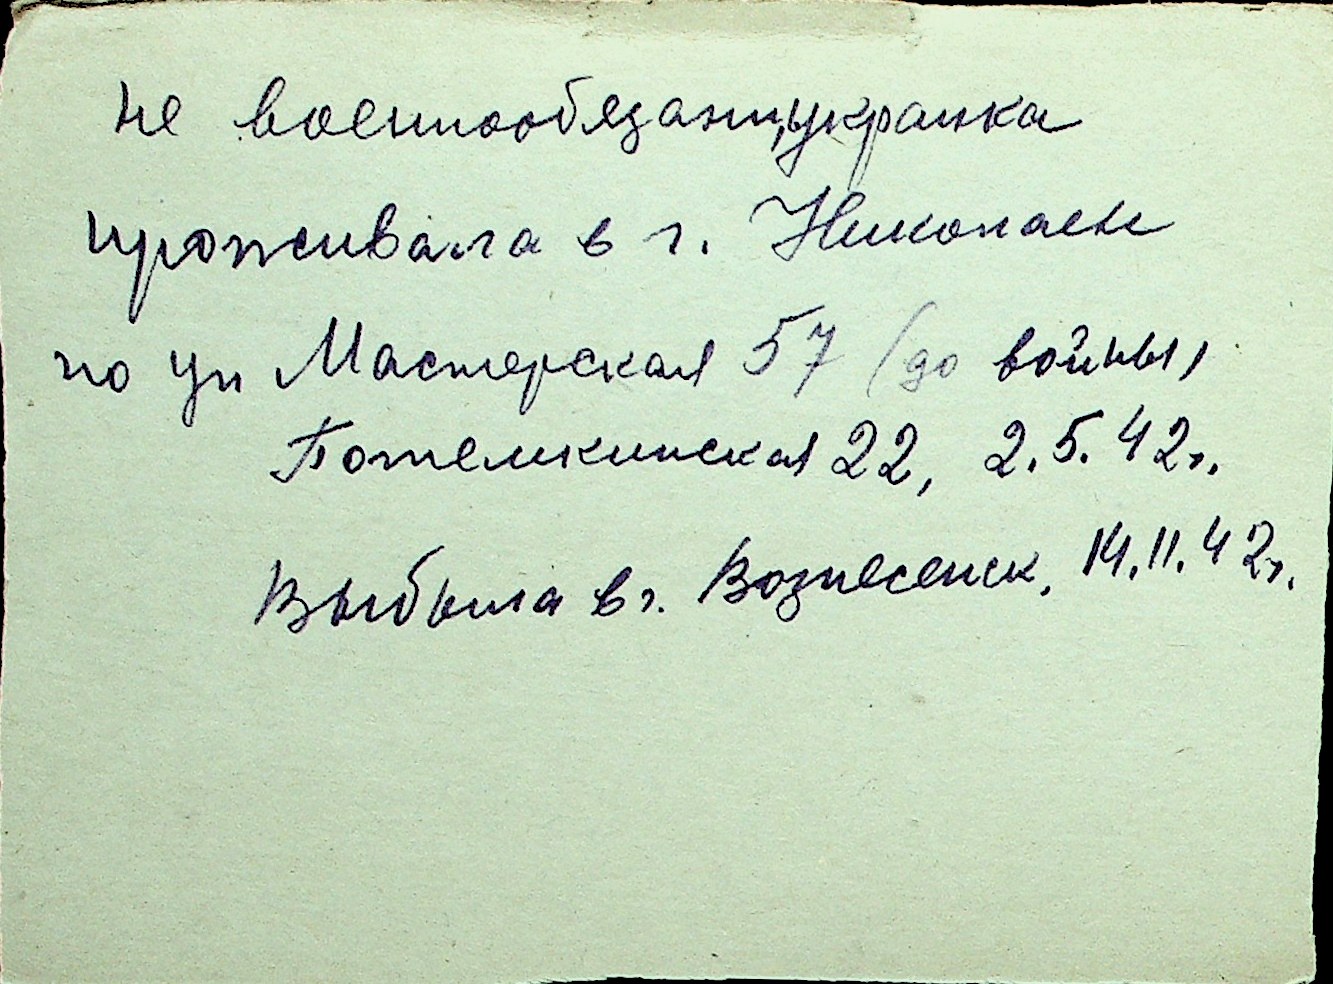 не военнообязан, украинка
проживала в г. Николаеве
по ул Мастерская 57 (до войны)
Потемкинская 22, 2.5.42г.
Выбыла в г. Вознесенск, 14.11.42г.